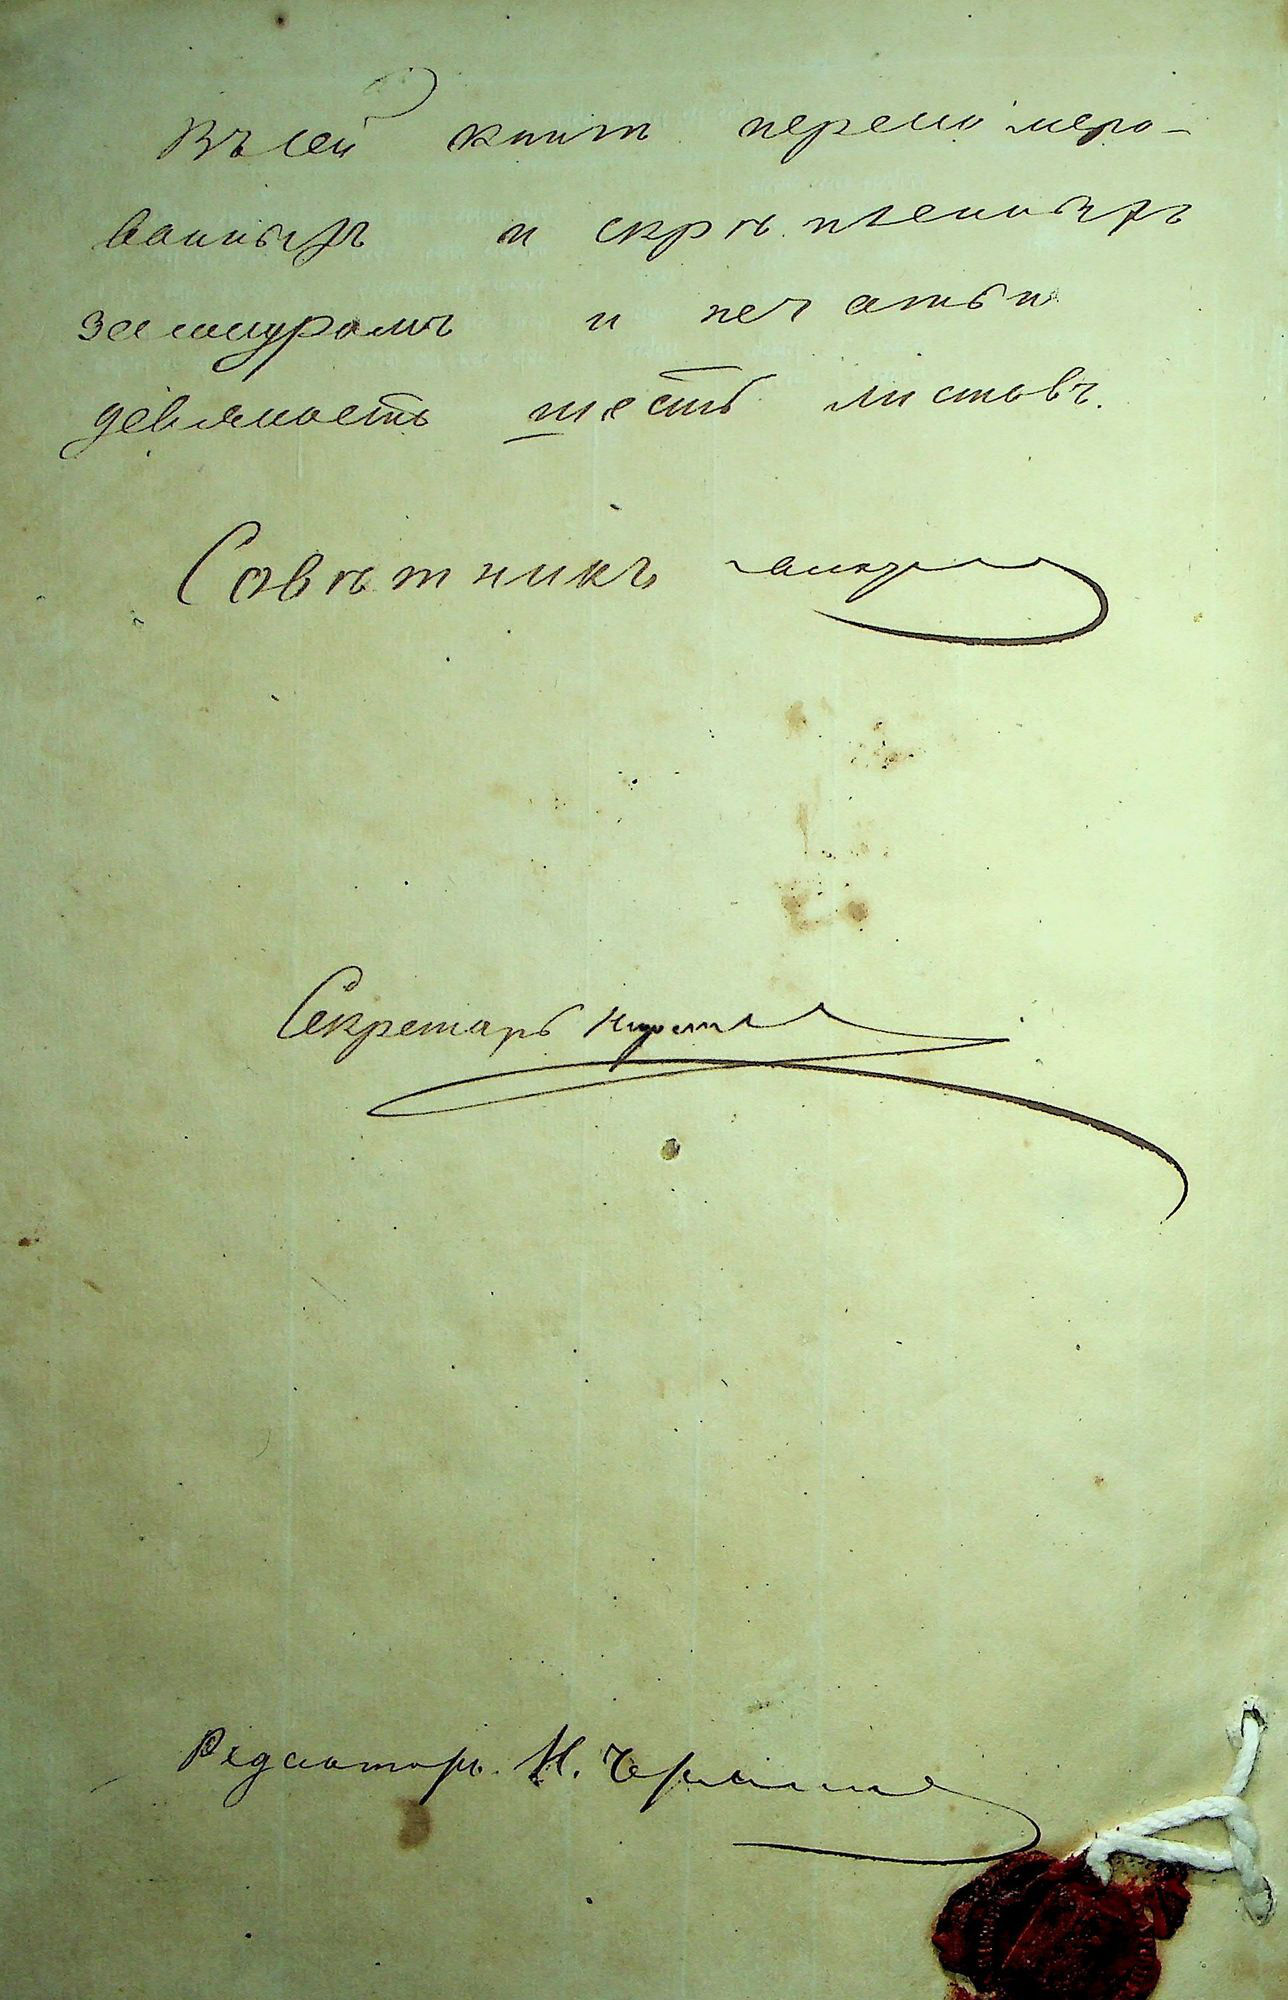 Въ сей книгѣ перенумеро-
ванныхъ и скрѣпленныхъ
за шнуромъ и печатью
девяносто шесть листовъ.
Совѣтникъ
Секретарь
Редакторъ Н.